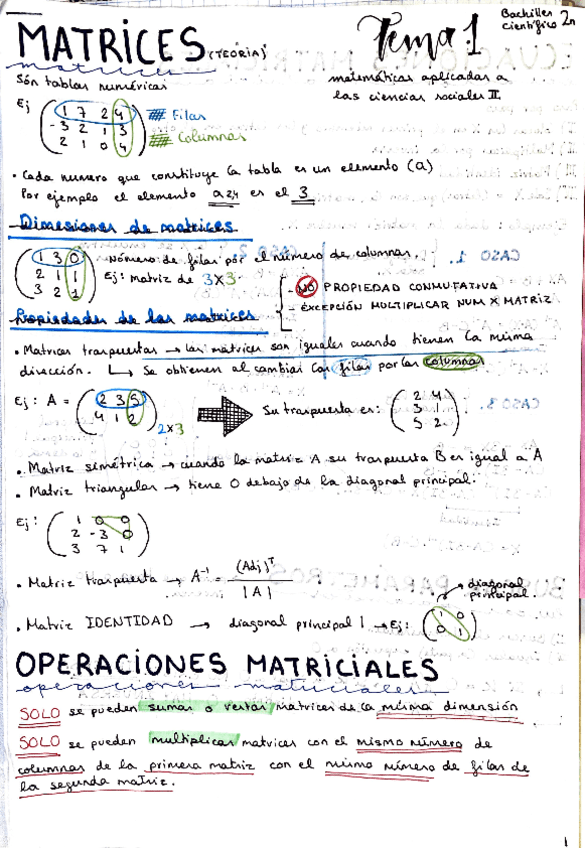 MATRICES (TEORÍA)
matrices
Tema 1
Bachiller 2n
científico
matemáticas aplicadas a
las ciencias sociales II
Són tablas numéricas
Ej ( 1 7 2 4
-3 2 1 3
2 1 0 4 )
Filas
Columnas
• Cada numero que constituye la tabla es un elemento (a)
Por ejemplo el elemento a24 es el 3
Dimesiones de matrices
( 1 3 0
2 1 1
3 2 1 )
Número de filas por el número de columnas.
Ej: matriz de 3x3
- NO PROPIEDAD CONMUTATIVA
- EXCEPCIÓN MULTIPLICAR NUM X MATRIZ
Propiedades de las matrices
• Matrices traspuestas → las matrices son iguales cuando tienen la misma
dirección. ↳ Se obtienen al cambiar las filas por las columnas
Ej: A = ( 2 3 5
4 1 2 ) 2x3
Su traspuesta es: ( 2 4
3 1
5 2 )
• Matriz simétrica → cuando la matriz A su traspuesta B es igual a A
• Matriz triangular → tiene 0 debajo de la diagonal principal.
Ej: ( 1 0 0
2 -3 0
3 7 1 )
• Matriz traspuesta → A⁻¹ = (Adj)ᵀ
|A|
diagonal
principal.
• Matriz IDENTIDAD → diagonal principal 1 → Ej: ( 1 0
0 1 )
OPERACIONES MATRICIALES
operaciones matriciales
SOLO se pueden sumar o restar matrices de la misma dimensión
SOLO se pueden multiplicar matrices con el mismo número de
columnas de la primera matriz con el mismo número de filas de
la segunda matriz.
1